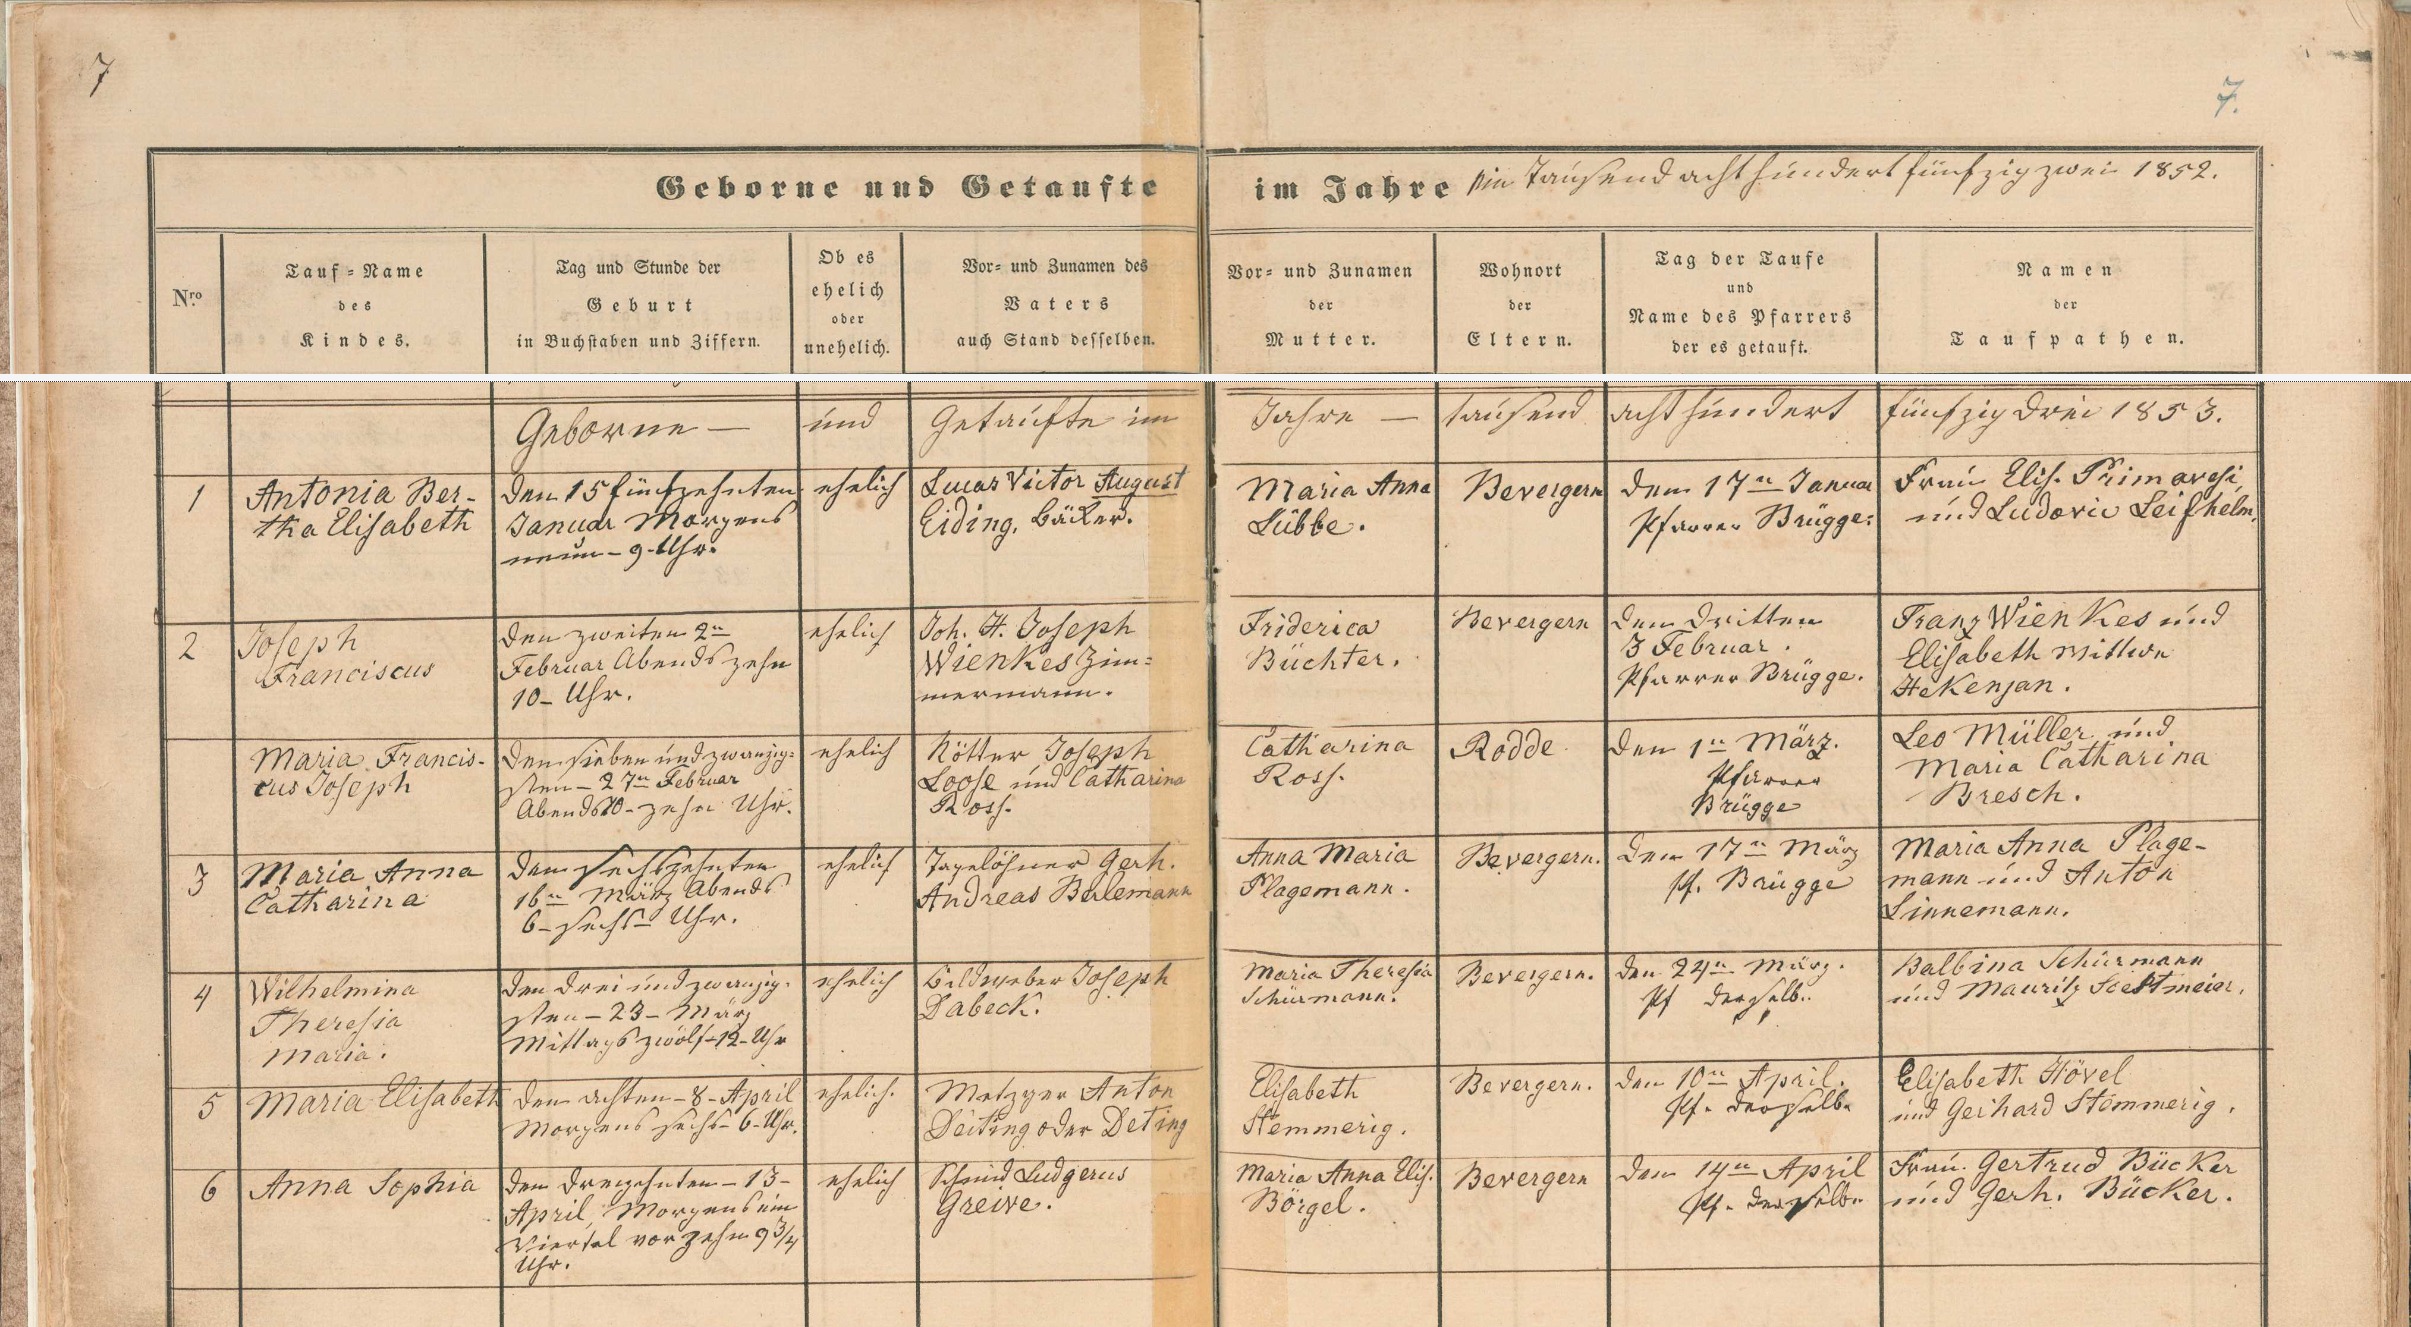 7
7.
Geborne und Getaufte im Jahre ein tausend acht hundert fünfzig zwei 1852.
Nro.
Tauf-Name
des
Kindes.
Tag und Stunde der
Geburt
in Buchstaben und Ziffern.
Ob es
ehelich
oder
unehelich.
Vor- und Zunamen des
Vaters
auch Stand desselben.
Vor- und Zunamen
der
Mutter.
Wohnort
der
Eltern.
Tag der Taufe
und
Name des Pfarrers
der es getauft.
Namen
der
Taufpathen.
Geborne — und Getaufte im Jahre — tausend acht hundert fünfzig drei 1853.
1
Antonia Ber-
tha Elisabeth
den 15 fünfzehnten
Januar Morgens
neun - 9 - Uhr.
ehelich
Lucas Victor August
Eiding, Bäcker.
Maria Anna
Lübbe.
Bevergern
den 17n Januar
Pfarrer Brügge.
Frau Elis. Primavesi,
und Ludovic Leifhelm,
2
Joseph
Franciscus
den zweiten 2n
Februar Abends zehn
10 - Uhr.
ehelich
Joh. H. Joseph
Wienkes Zim-
mermann.
Friderica
Büchter.
Bevergern
den dritten
3 Februar.
Pfarrer Brügge.
Franz Wienkes und
Elisabeth Wittwe
Hekenjan.
Maria Francis-
cus Joseph
den sieben und zwanzig-
sten - 27n Februar
Abends 10 - zehn Uhr.
ehelich
Kötter Joseph
Loose und Catharina
Ross.
Catharina
Ross.
Rodde
den 1n März.
Pfarrer
Brügge
Leo Müller und
Maria Catharina
Bresch.
3
Maria Anna
Catharina
den sechszehnten
16n März Abends
6 - sechs - Uhr.
ehelich
Tagelöhner Gerh.
Andreas Berlemann
Anna Maria
Plagemann.
Bevergern.
den 17n März
Pf. Brügge
Maria Anna Plage-
mann und Anton
Linnemann.
4
Wilhelmina
Theresia
Maria.
den drei und zwanzig-
sten - 23 - März
Mittags zwölf - 12 - Uhr
ehelich
Joseph
Dabeck.
Maria Theresia
Schürmann.
Bevergern.
den 24n März.
Pf derselb..
Balbina Schürmann
und Mauritz
5
Maria Elisabeth
den achten - 8 - April
Morgens sechs - 6 - Uhr.
ehelich.
Metzger Anton
Deiting oder Deting
Elisabeth
Stemmerig.
Bevergern.
den 10n April.
Pf. derselb.
Elisabeth Hövel
und Gerhard Stemmerig.
6
Anna Sophia
den dreizehnten - 13 -
April Morgens ein
Viertel vor zehn 9 3/4
Uhr.
ehelich
Schmid Ludgerus
Greive.
Maria Anna Elis.
Börgel.
Bevergern
den 14n April
Pf. derselb.
Frau Gertrud Bücker
und Gerh. Bücker.